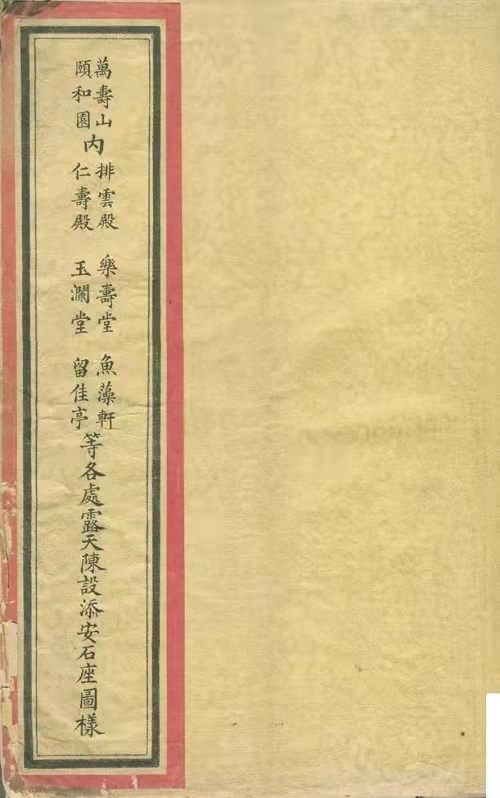 萬壽山
頤和園
内
排雲殿
仁壽殿
樂壽堂
玉瀾堂
魚藻軒
留佳亭
等各處露天陳設添安石座圖樣